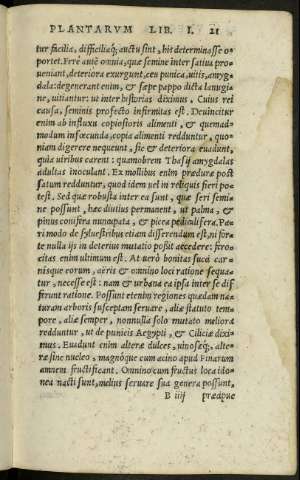 PLANTARVM LIB. I. 21
tur facilia, difficiliaq́; auctu sint, hic determinasse o-
portet. Ferè autē omnia, quæ semine inter satiua pro-
ueniant, deteriora exurgunt, ceu punica, uitis, amyg-
dala: degenerant enim, & sæpe pappo dicta lanugi-
ne, uitiantur: ut inter historias diximus. Cuius rei
causa, seminis profecto infirmitas est. Deuincitur
enim ab influxu copiosioris alimenti, & quemad-
modum infœcunda, copia alimenti redduntur, quo-
niam digerere nequeunt, sic & deteriora euadunt,
quia uiribus carent: quamobrem Thasij amygdalas
adultas inoculant. Ex mollibus enim prædura post
satum redduntur, quod idem uel in reliquis fieri po-
test. Sed quæ robusta inter ea sunt, quæ seri semi-
ne possunt, hæc diutius permanent, ut palma, &
pinus conifera nuncupata, & picea pediculifera. Pa-
ri modo de syluestribus etiam differendum est, ni for-
te nulla ijs in deterius mutatio possit accedere: fero-
citas enim ultimum est. At uerò bonitas succi car-
nísque eorum, aëris & omnino loci ratione sequa-
tur, necesse est: nam & urbana ea ipsa inter se dif-
ferunt ratione. Possunt etenim regiones quædam na-
turam arboris susceptam seruare, aliæ statuto tem-
pore, aliæ semper, nonnullæ solo mutato meliora
redduntur, ut de punicis Aegypti, & Ciliciæ dixi-
mus. Euadunt enim alteræ dulces, uinosæq́;, alte-
ræ sine nucleo, magnóque cum acino apud Pinarum
amnem fructificant. Omnino cum fructus loca ido-
nea nacti sunt, melius seruare sua genera possunt,
B iiij prædque